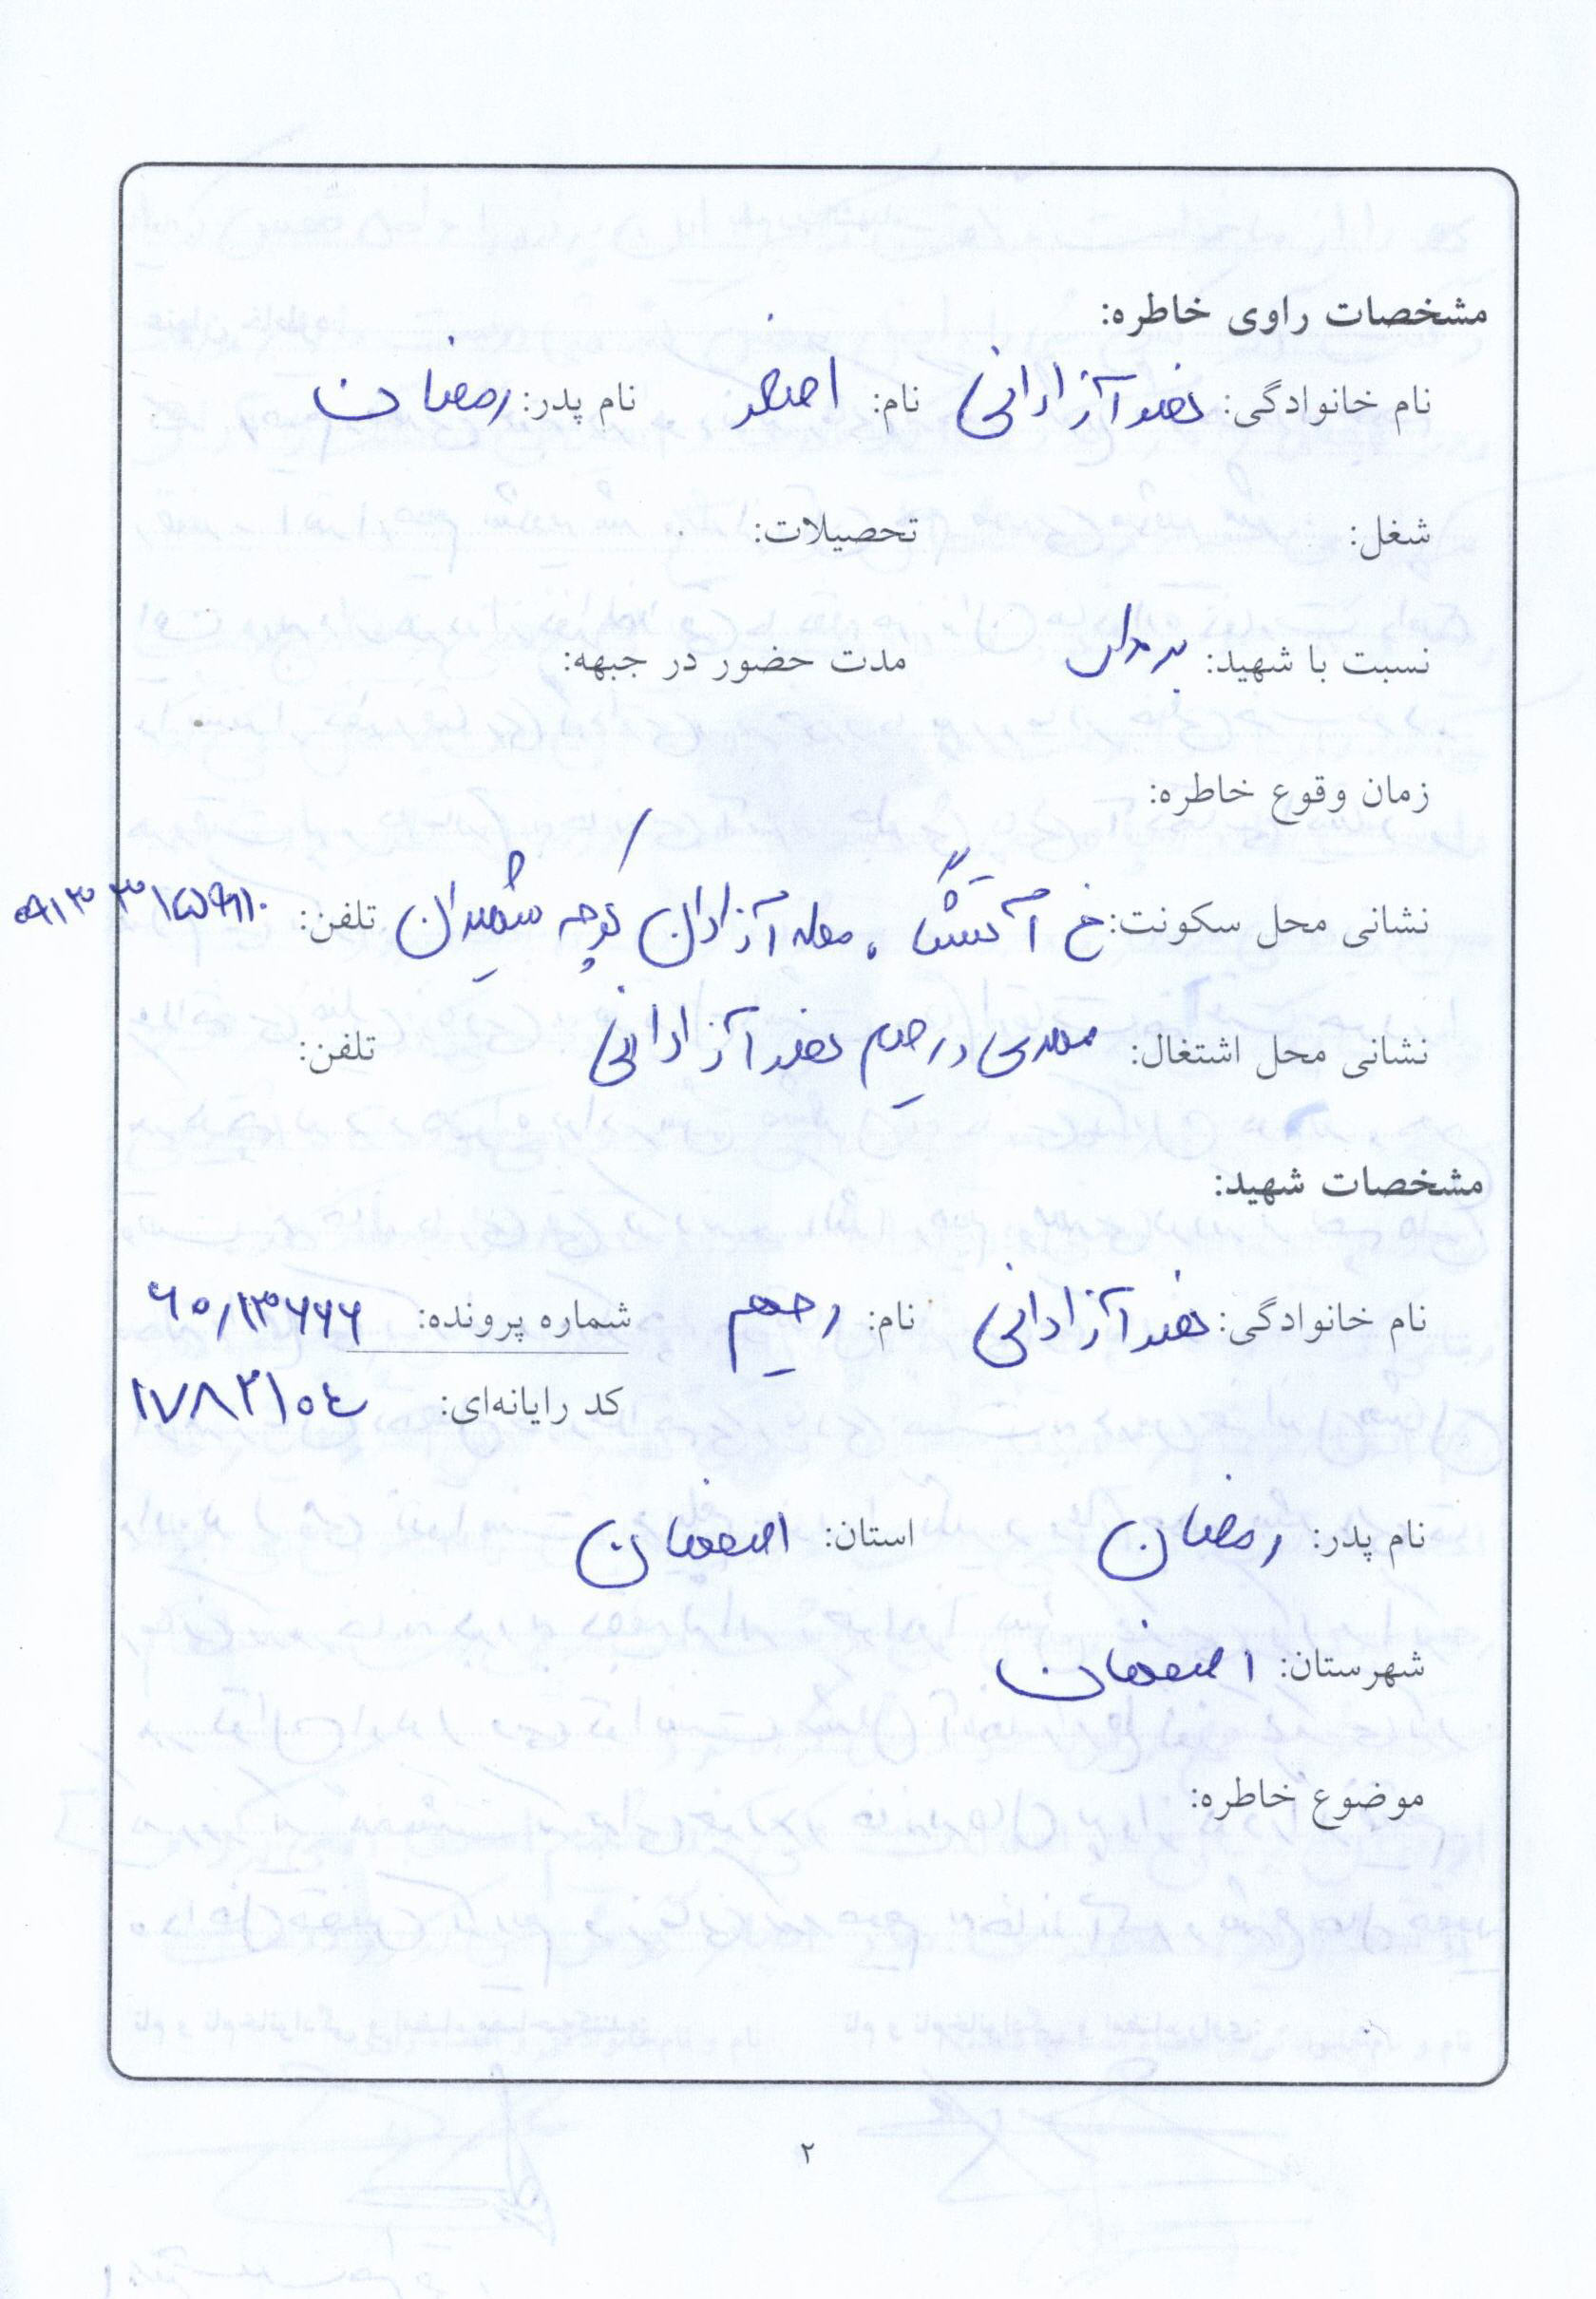 مشخصات راوی خاطره:
نام خانوادگی: نضد آزادانی نام: اصغر نام پدر: رمضان
شغل: تحصیلات:
نسبت با شهید: برادر مدت حضور در جبهه:
زمان وقوع خاطره:
نشانی محل سکونت: خ آتشگاه محله آزادان کوچه شهیدان تلفن:
نشانی محل اشتغال: مهدی و رحیم آزادانی تلفن:
مشخصات شهید:
نام خانوادگی: آزادانی نام: رحیم شماره پرونده: ۶۰/۱۳۶۶۶
کد رایانه‌ای: ۱۷۸۲۱۰۴
نام پدر: رمضان استان: اصفهان
شهرستان: اصفهان
موضوع خاطره:
۲